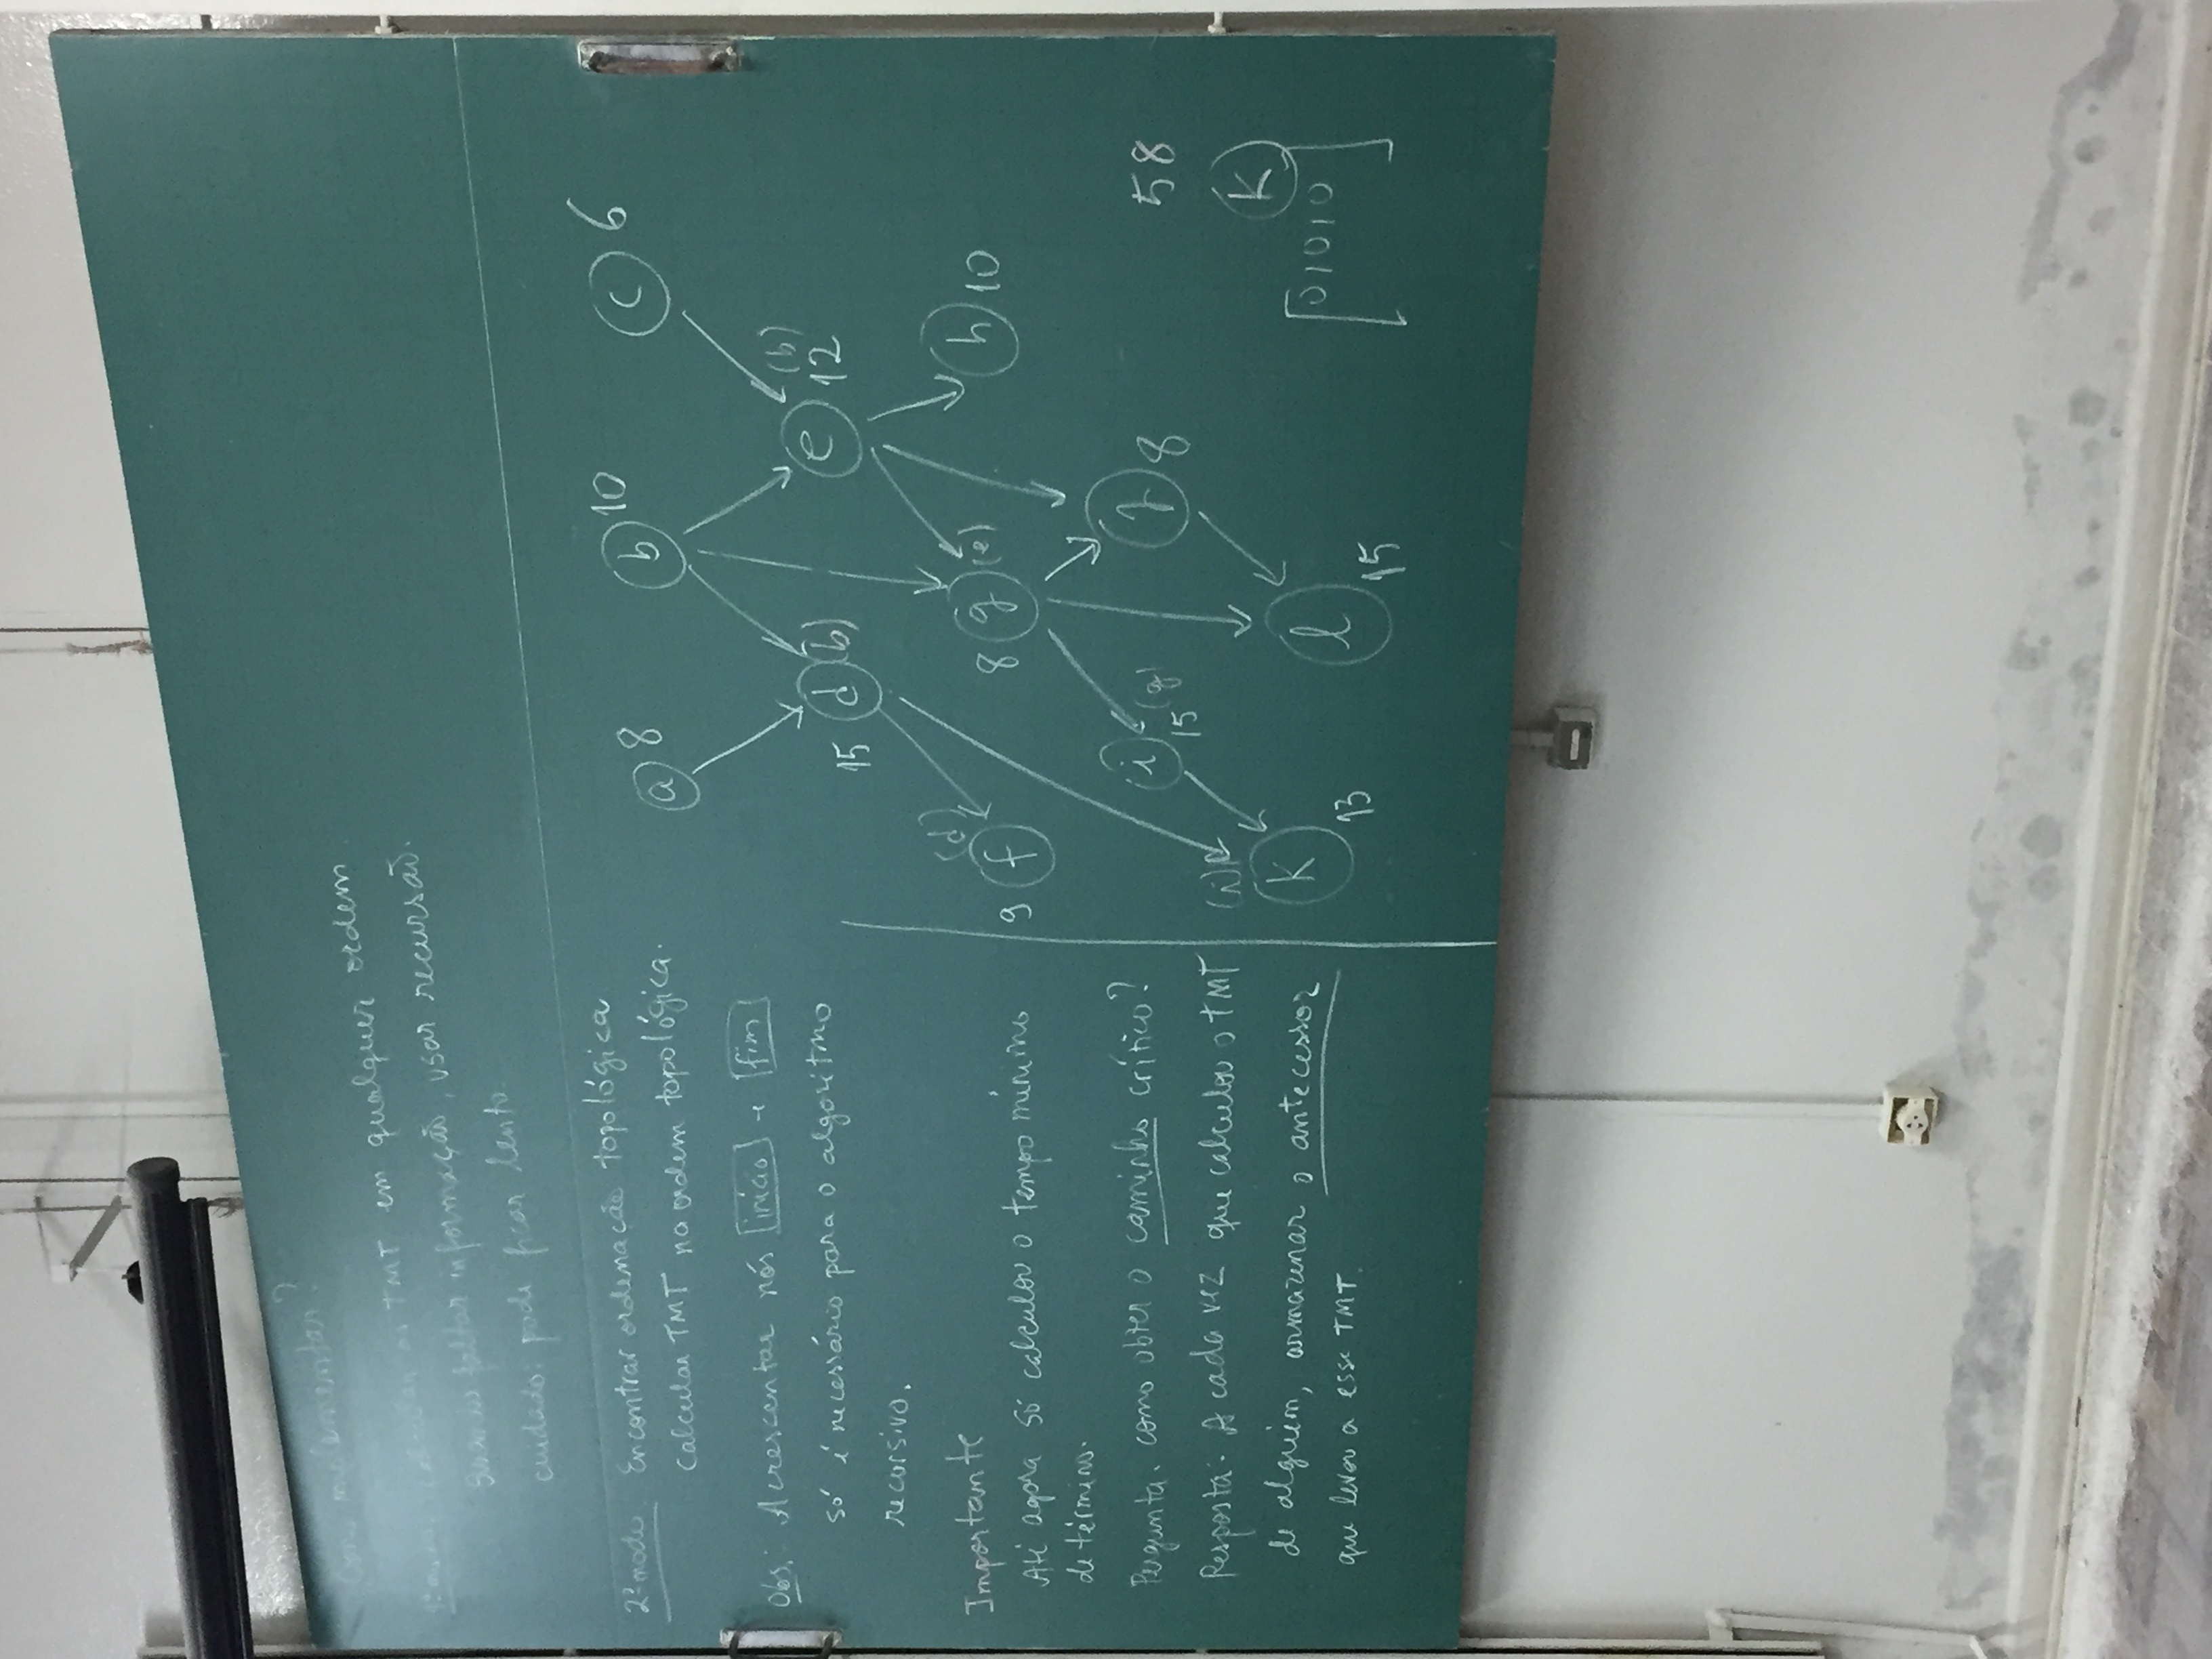 Como implementar?
1º modo: Calcular os TMT em qualquer ordem
Quando faltar informação, usar recursão.
cuidado: pode ficar lento.
2º modo Encontrar ordenação topológica
Calcular TMT na ordem topológica.
Obs.: Acrescentar nós início e fim
só é necessário para o algoritmo
recursivo.
Importante
Até agora só calculou o tempo mínimo
de término.
Pergunta. como obter o caminho crítico?
Resposta: A cada vez que calculou o TMT
de alguém, armazenar o antecessor
que levou a esse TMT.
a 8
b 10
c 6
15 d (b)
e (b) 12
(d)
9 f
8 g (e)
h 10
i 15 (g)
j 8
(i)
k 13
l 15
58
K
01010